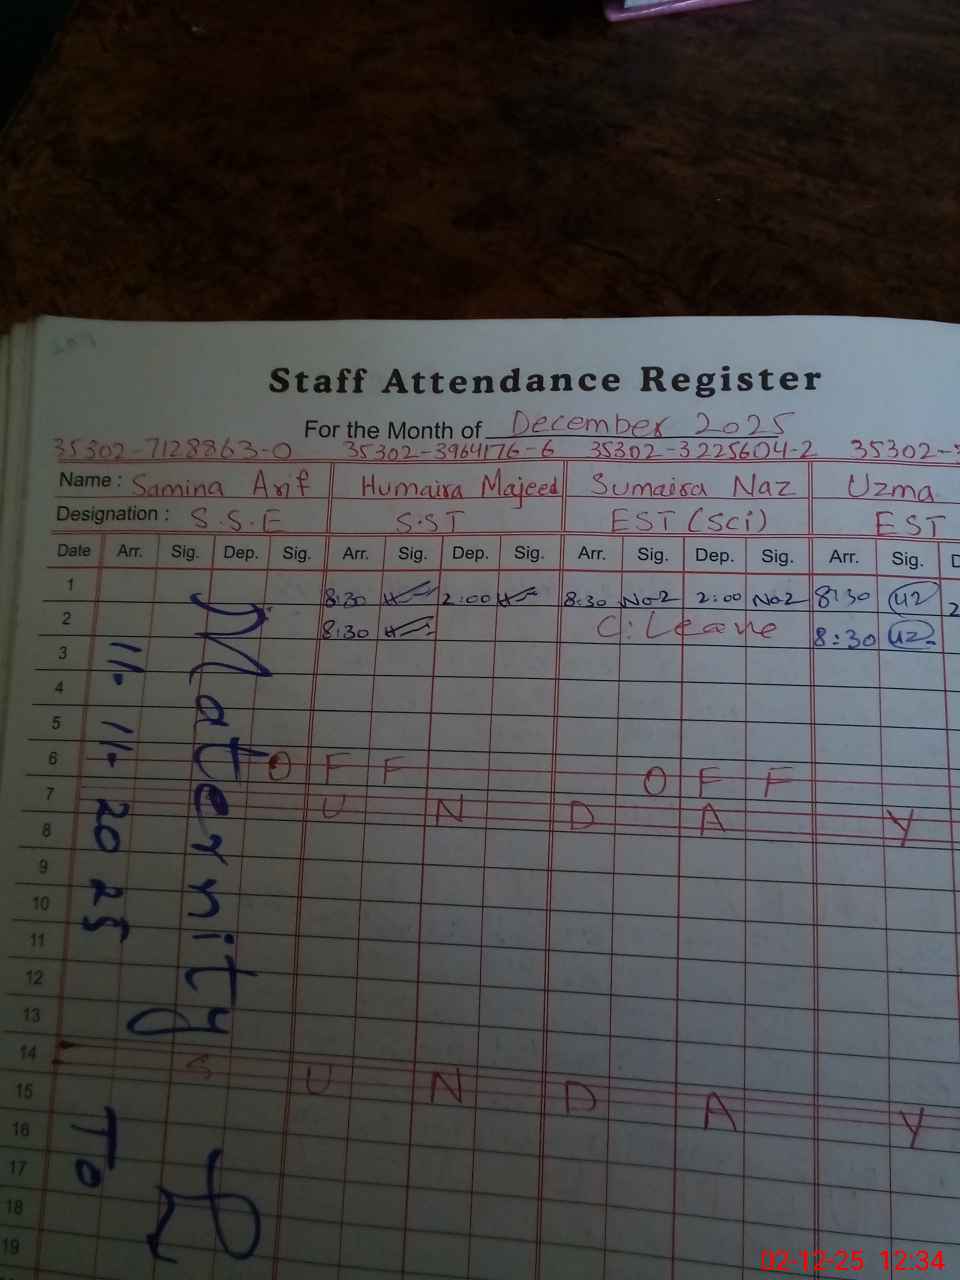 Staff Attendance Register
For the Month of December 2025
35302-7128863-0 35302-3964176-6 35302-3225604-2 35302-
Name : Samina Arif Humaira Majeed Sumaira Naz Uzma
Designation : S.S.E S.ST EST (sci) EST
Date Arr. Sig. Dep. Sig. Arr. Sig. Dep. Sig. Arr. Sig. Dep. Sig. Arr. Sig. D
1 8:30 2:00 8:30 2:00 8:30 2
2 8:30 C:Leave 8:30
3
4
5
6 OFF OFF
7 UNDAY
8
9
10
11
12
13
14 SUNDAY
15
16
17
18
19
Maternity
11. 11. 2025 To
02-12-25 12:34